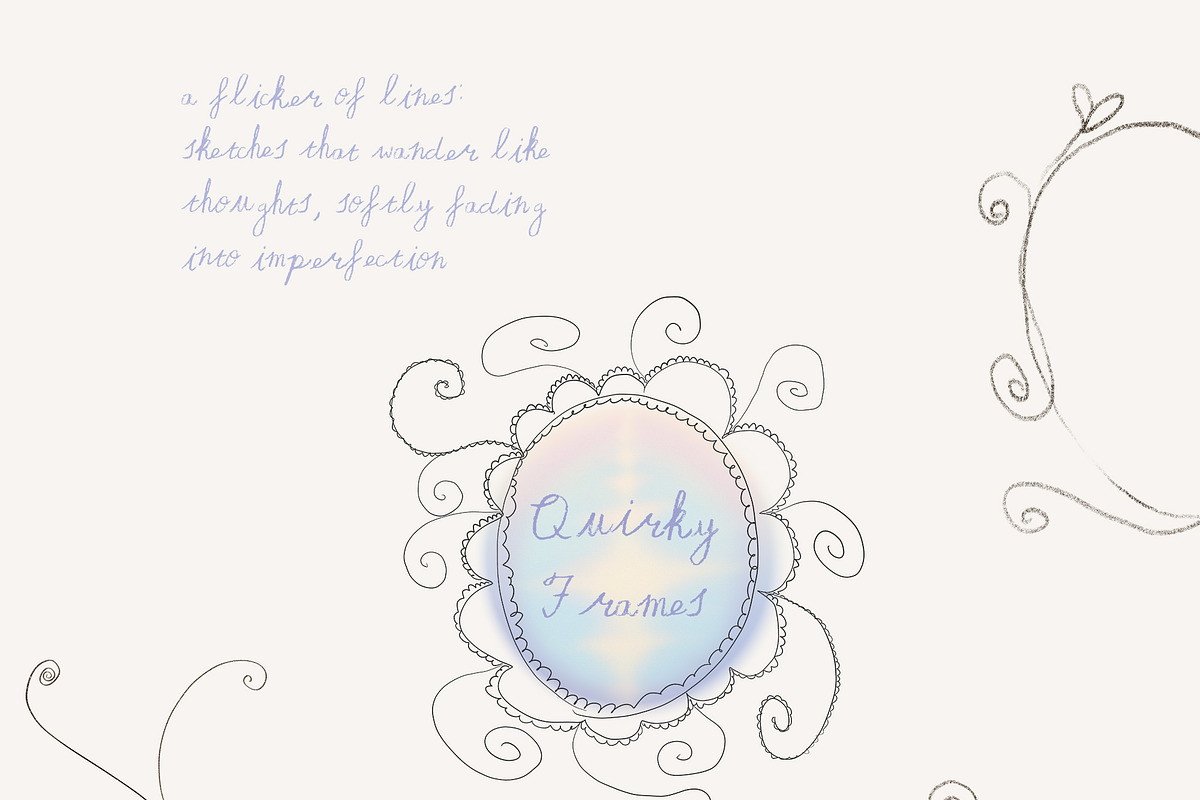 a flicker of lines:
sketches that wander like
thoughts, softly fading
into imperfection
Quirky
Frames